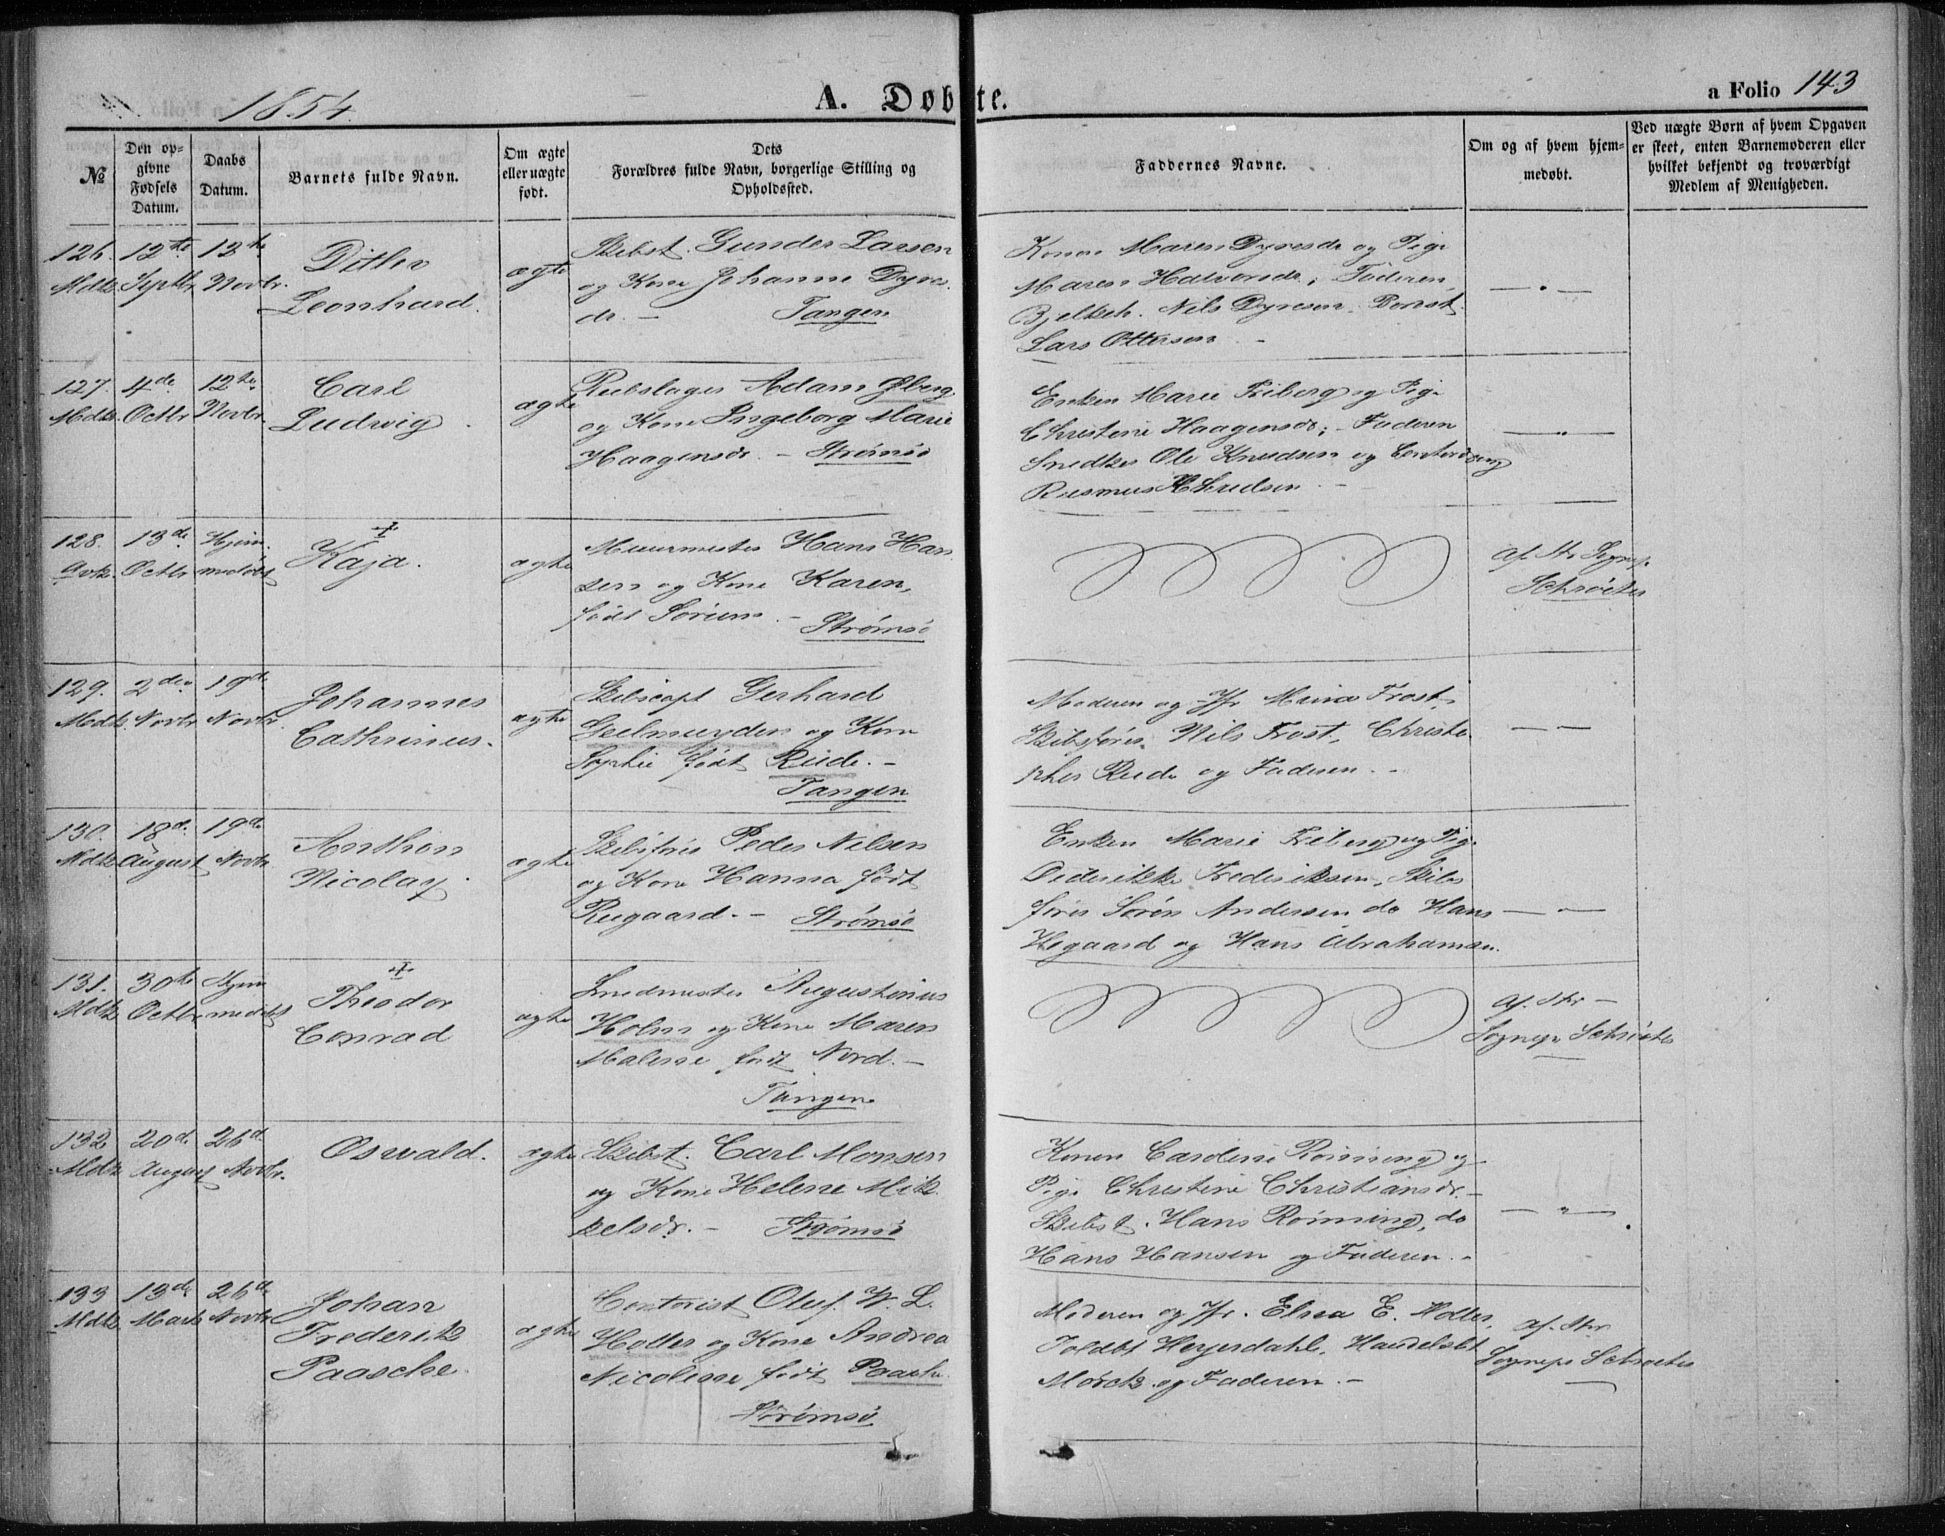 1854.
A. Døbte.
a Folio 143
№
Den op-
givne
Fødsels
Datum.
Daabs
Datum.
Barnets fulde Navn.
Om ægte
eller uægte
født.
Dets
Forældres fulde Navn, borgerlige Stilling og
Opholdssted.
Faddernes Navne.
Om og af hvem hjem-
medøbt.
Ved uægte Børn af hvem Opgaven
er skeet, enten Barnemoderen eller
hvilket bekjendt og troværdigt
Medlem af Menigheden.
126. 12te 12te
Mdk. Septbr. Novbr.
Ditlev
Leonhard.
ægte
Skibst. Gunder Larsen
og Kone Johanne Dyres
dr. — Tangen
Konen Maren Dyresdr og Pige
Maren Halvorsdr; Faderen,
Nils Dyresen
Lars Ottersen
127. 4de 12te
Mdk. Octbr Novbr.
Carl
Ludwig
ægte
Rebslager Adam Øberg
og Kone Ingeborg Marie
Haagensdr. — Strømsø
Enken Marie Friberg og Pige
Christine Haagensdr; Faderen
Snedker Ole Knudsen og
Rasmus
128. 13de Hjem-
Qvk. Octbr medøbt
Kaja.
ægte
Muurmester Hans Han
sen og Kone Karen,
født Sørum. — Strømsø
af Hr Sognep.
Schrøeter
129. 2den 19de
Mdk. Novbr. Novbr.
Johannes
Cathrinus.
ægte
Skibscapt Gerhard
Geelmuyden og Kone
Sophie født Rude. —
Tangen
Moderen og Jfr Mina Frost,
Skibsfører Nils Frost, Christo
pher Rude og Faderen. —
130. 18de 19de
Mdk August Novbr.
Anthon
Nicolay.
ægte
Skibsfører Peder Nilsen
og Kone Hanna født
Rugaard. — Strømsø
Enken Marie Friberg og Pige
Diderikke Frederiksen, Skibs
fører Søren Andersen do Hans
og Hans Abrahamsen.
131. 30te Hjem
Mdk Octbr medøbt
Theodor
Conrad
ægte
Smedmester Augustinius
Holm og Kone Maren
Malene født Nord. —
Tangen
af Hr —
Sognepr Schrøeter
132 20de 26de
Mdk August Novbr.
Oswald.
ægte
Skibst. Carl Monsen
og Kone Helene Mik
kelsdr. — Strømsø
Konen Caroline Rønning og
Pige Christine Christiansdr. —
Skibst. Hans Rønning, do
Hans Hansen og Faderen. —
133 13de 26de
Mdk. Marts Novbr
Johan
Frederik
Paasche.
ægte
Contorist Oluf W. L.
Holter og Kone Andrea
Nicoline født Paasche.
Strømsø
Moderen og Jfr. Elisa E. Holter,
Toldbt Heyerdahl, Handelsbt
Mørch og Faderen. —
af Hr
Sognepr Schrøeter